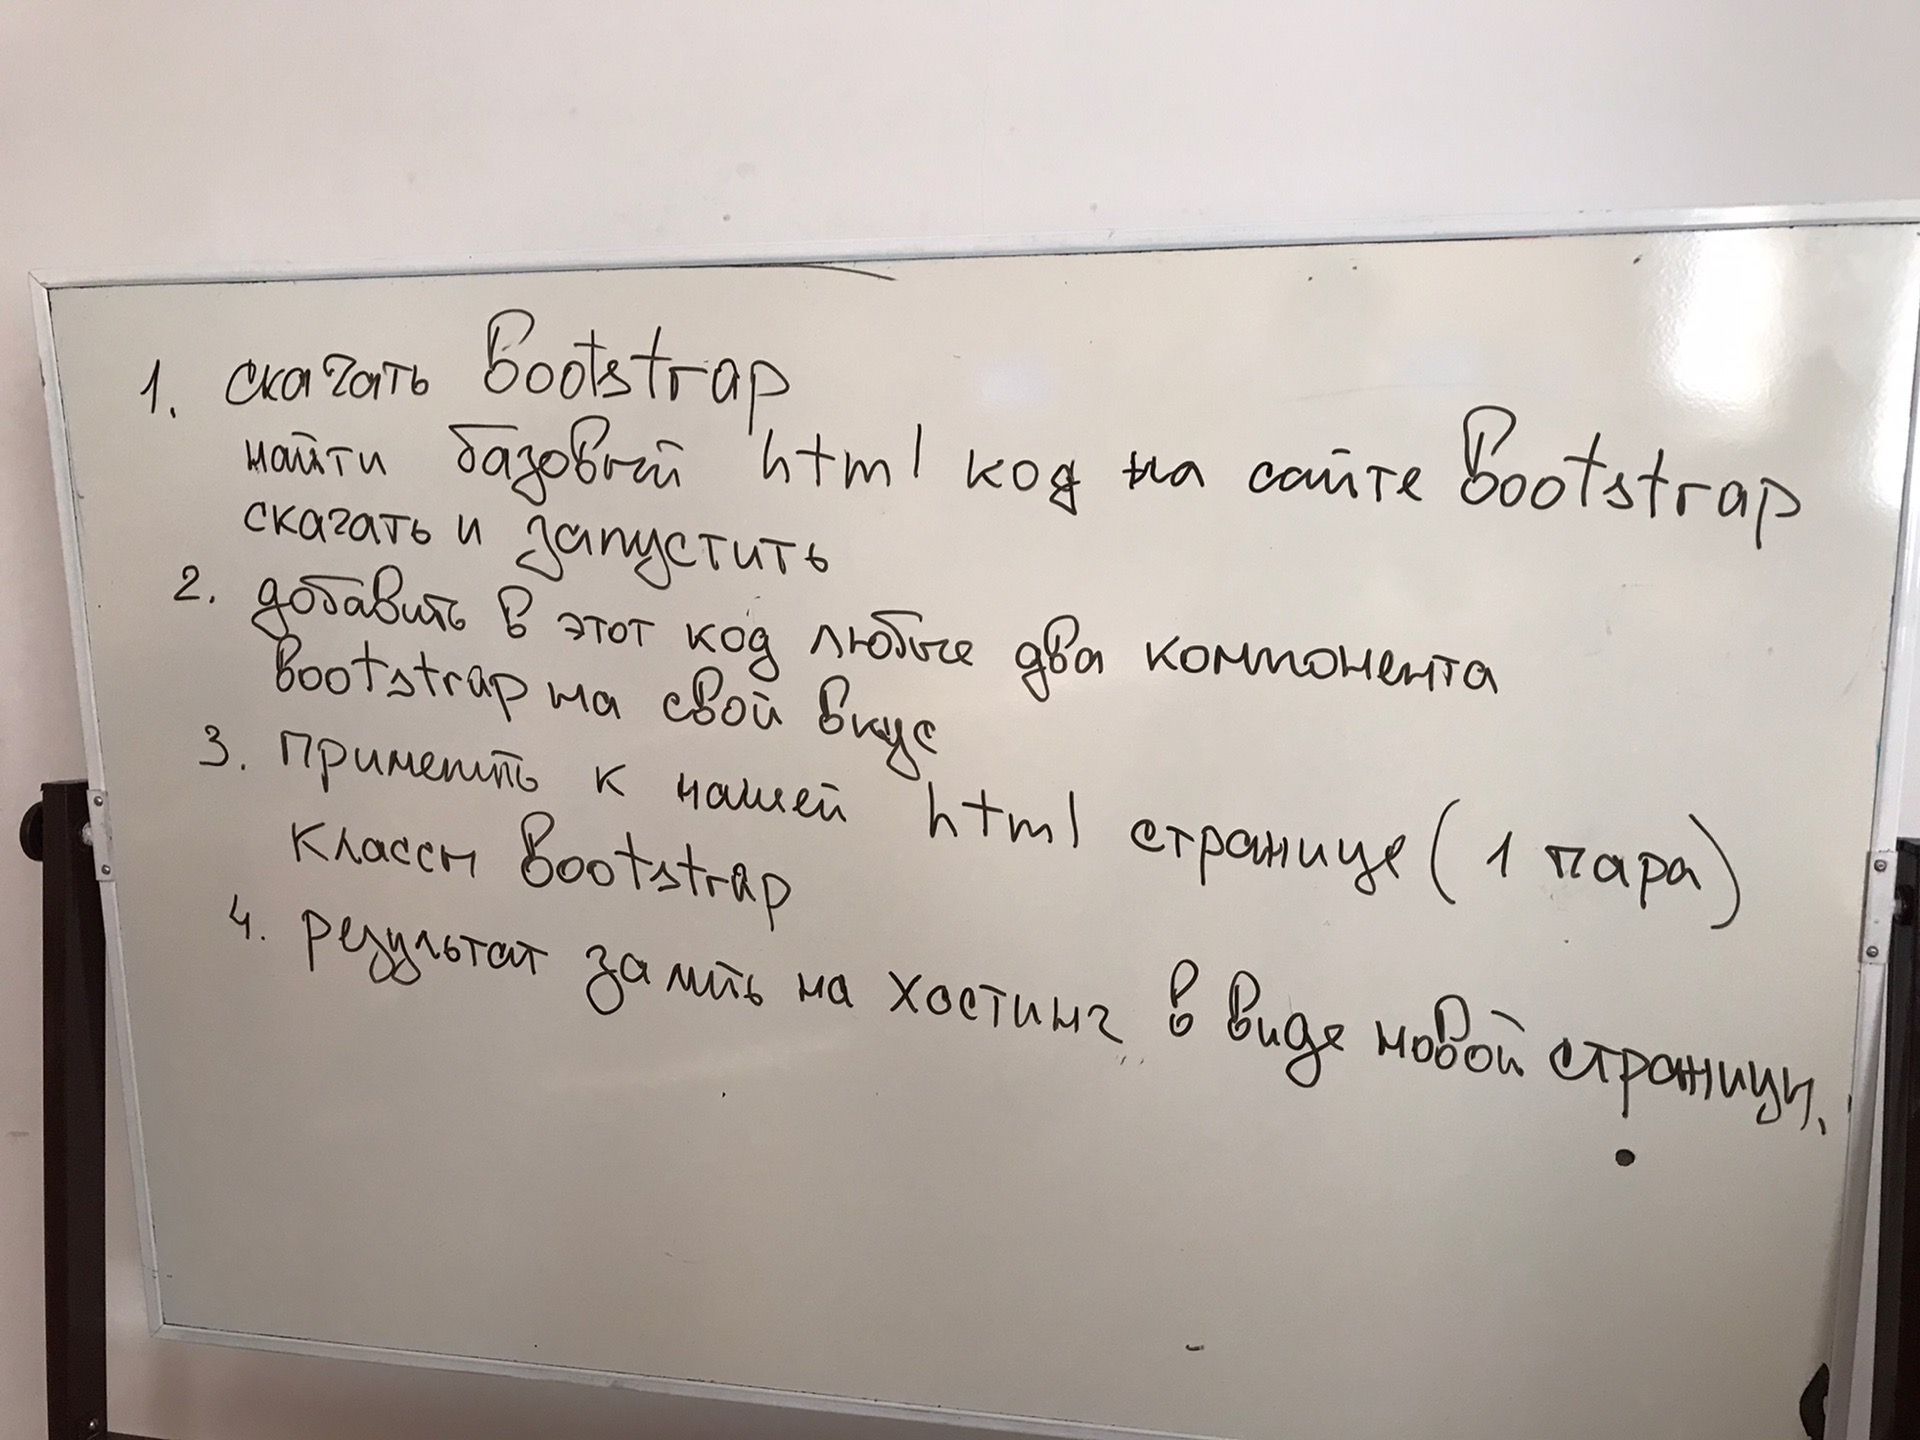 1. скачать Bootstrap
найти базовый html код на сайте Bootstrap
скачать и запустить
2. добавить в этот код любые два компонента
Bootstrap на свой вкус
3. Применить к нашей html странице (1 пара)
классы Bootstrap
4. результат залить на хостинг в виде новой страницы.